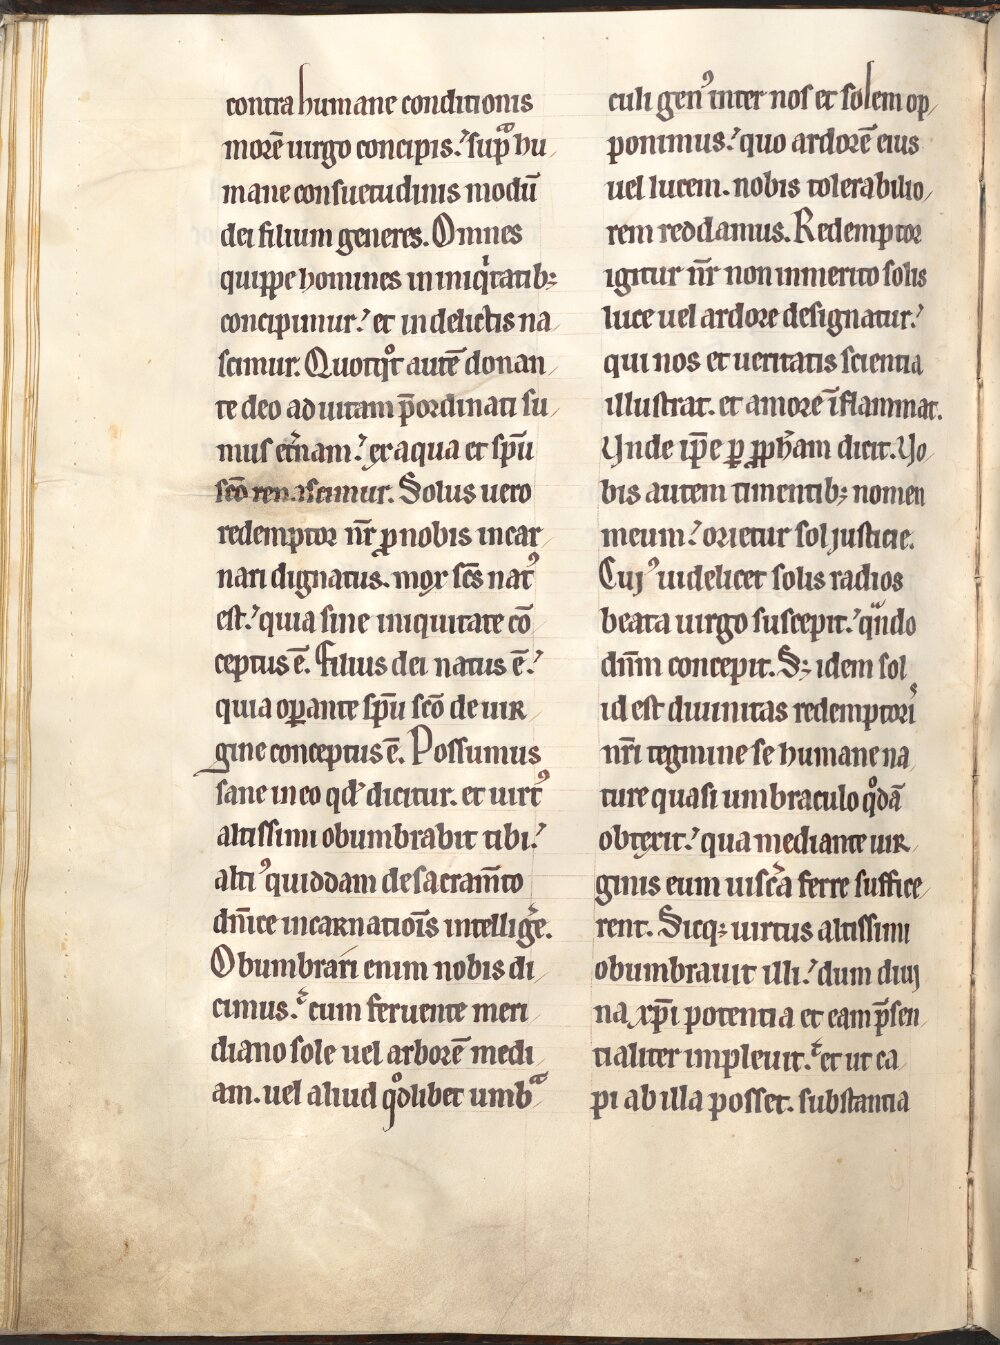 contra humane conditionis
morē uirgo concipis. sup̄ᵃ hu
mane consuetudinis modū
dei filium generes. Omnes
quippe homines in iniqͥtatib;
concipimur. et in delictis na
scimur. Quotqͦt autē donan
te deo ad uitam p̄ordinati su
mus et͛nam. ex aqua et sp̄u
sc̄o renascimur. Solus uero
redemptor nr̄ ꝓ nobis incar
nari dignatus. mox sc̄s natꝰ
est. quia sine iniquitate cō
ceptus ē. Filius dei natus ē.
quia oꝑante sp̄u sc̄o de uir
gine conceptus ē. Possumus
sane in eo qd̛ dicitur. et uirtꝰ
altissimi obumbrabit tibi.
altiꝰ quiddam de sacram̄to
dn̄ice incarnatiōis intellig͛e.
Obumbrari enim nobis di
cimus. cum feruente meri
diano sole uel arborē medi
am. uel aliud qͦdlibet umbᵃ
culi genꝰ inter nos et solem op
ponimus. quo ardorē eius
uel lucem. nobis tolerabilio
rem reddamus. Redemptor
igitur nr̄ non inmerito solis
luce uel ardore designatur.
qui nos et ueritatis scientia
illustrat. et amore īflammat.
Vnde ip̄e ꝑ ꝓph̄am dicit. Vo
bis autem timentib; nomen
meum. orietur sol justicie.
Cujꝰ uidelicet solis radios
beata uirgo suscepit. qᵃndo
dn̄m concepit. S; idem sol
id est diuinitas redemptoris
nr̄i tegmine se humane na
ture quasi umbraculo qͦdā
obtexit. qua mediante uir
ginis eum uisc͛a ferre suffice
rent. Sicq; uirtus altissimi
obumbrauit illi. dum diui
na xp̄i potentia et eam p̄sen
tialiter impleuit. et ut ca
pi ab illa posset. substantia